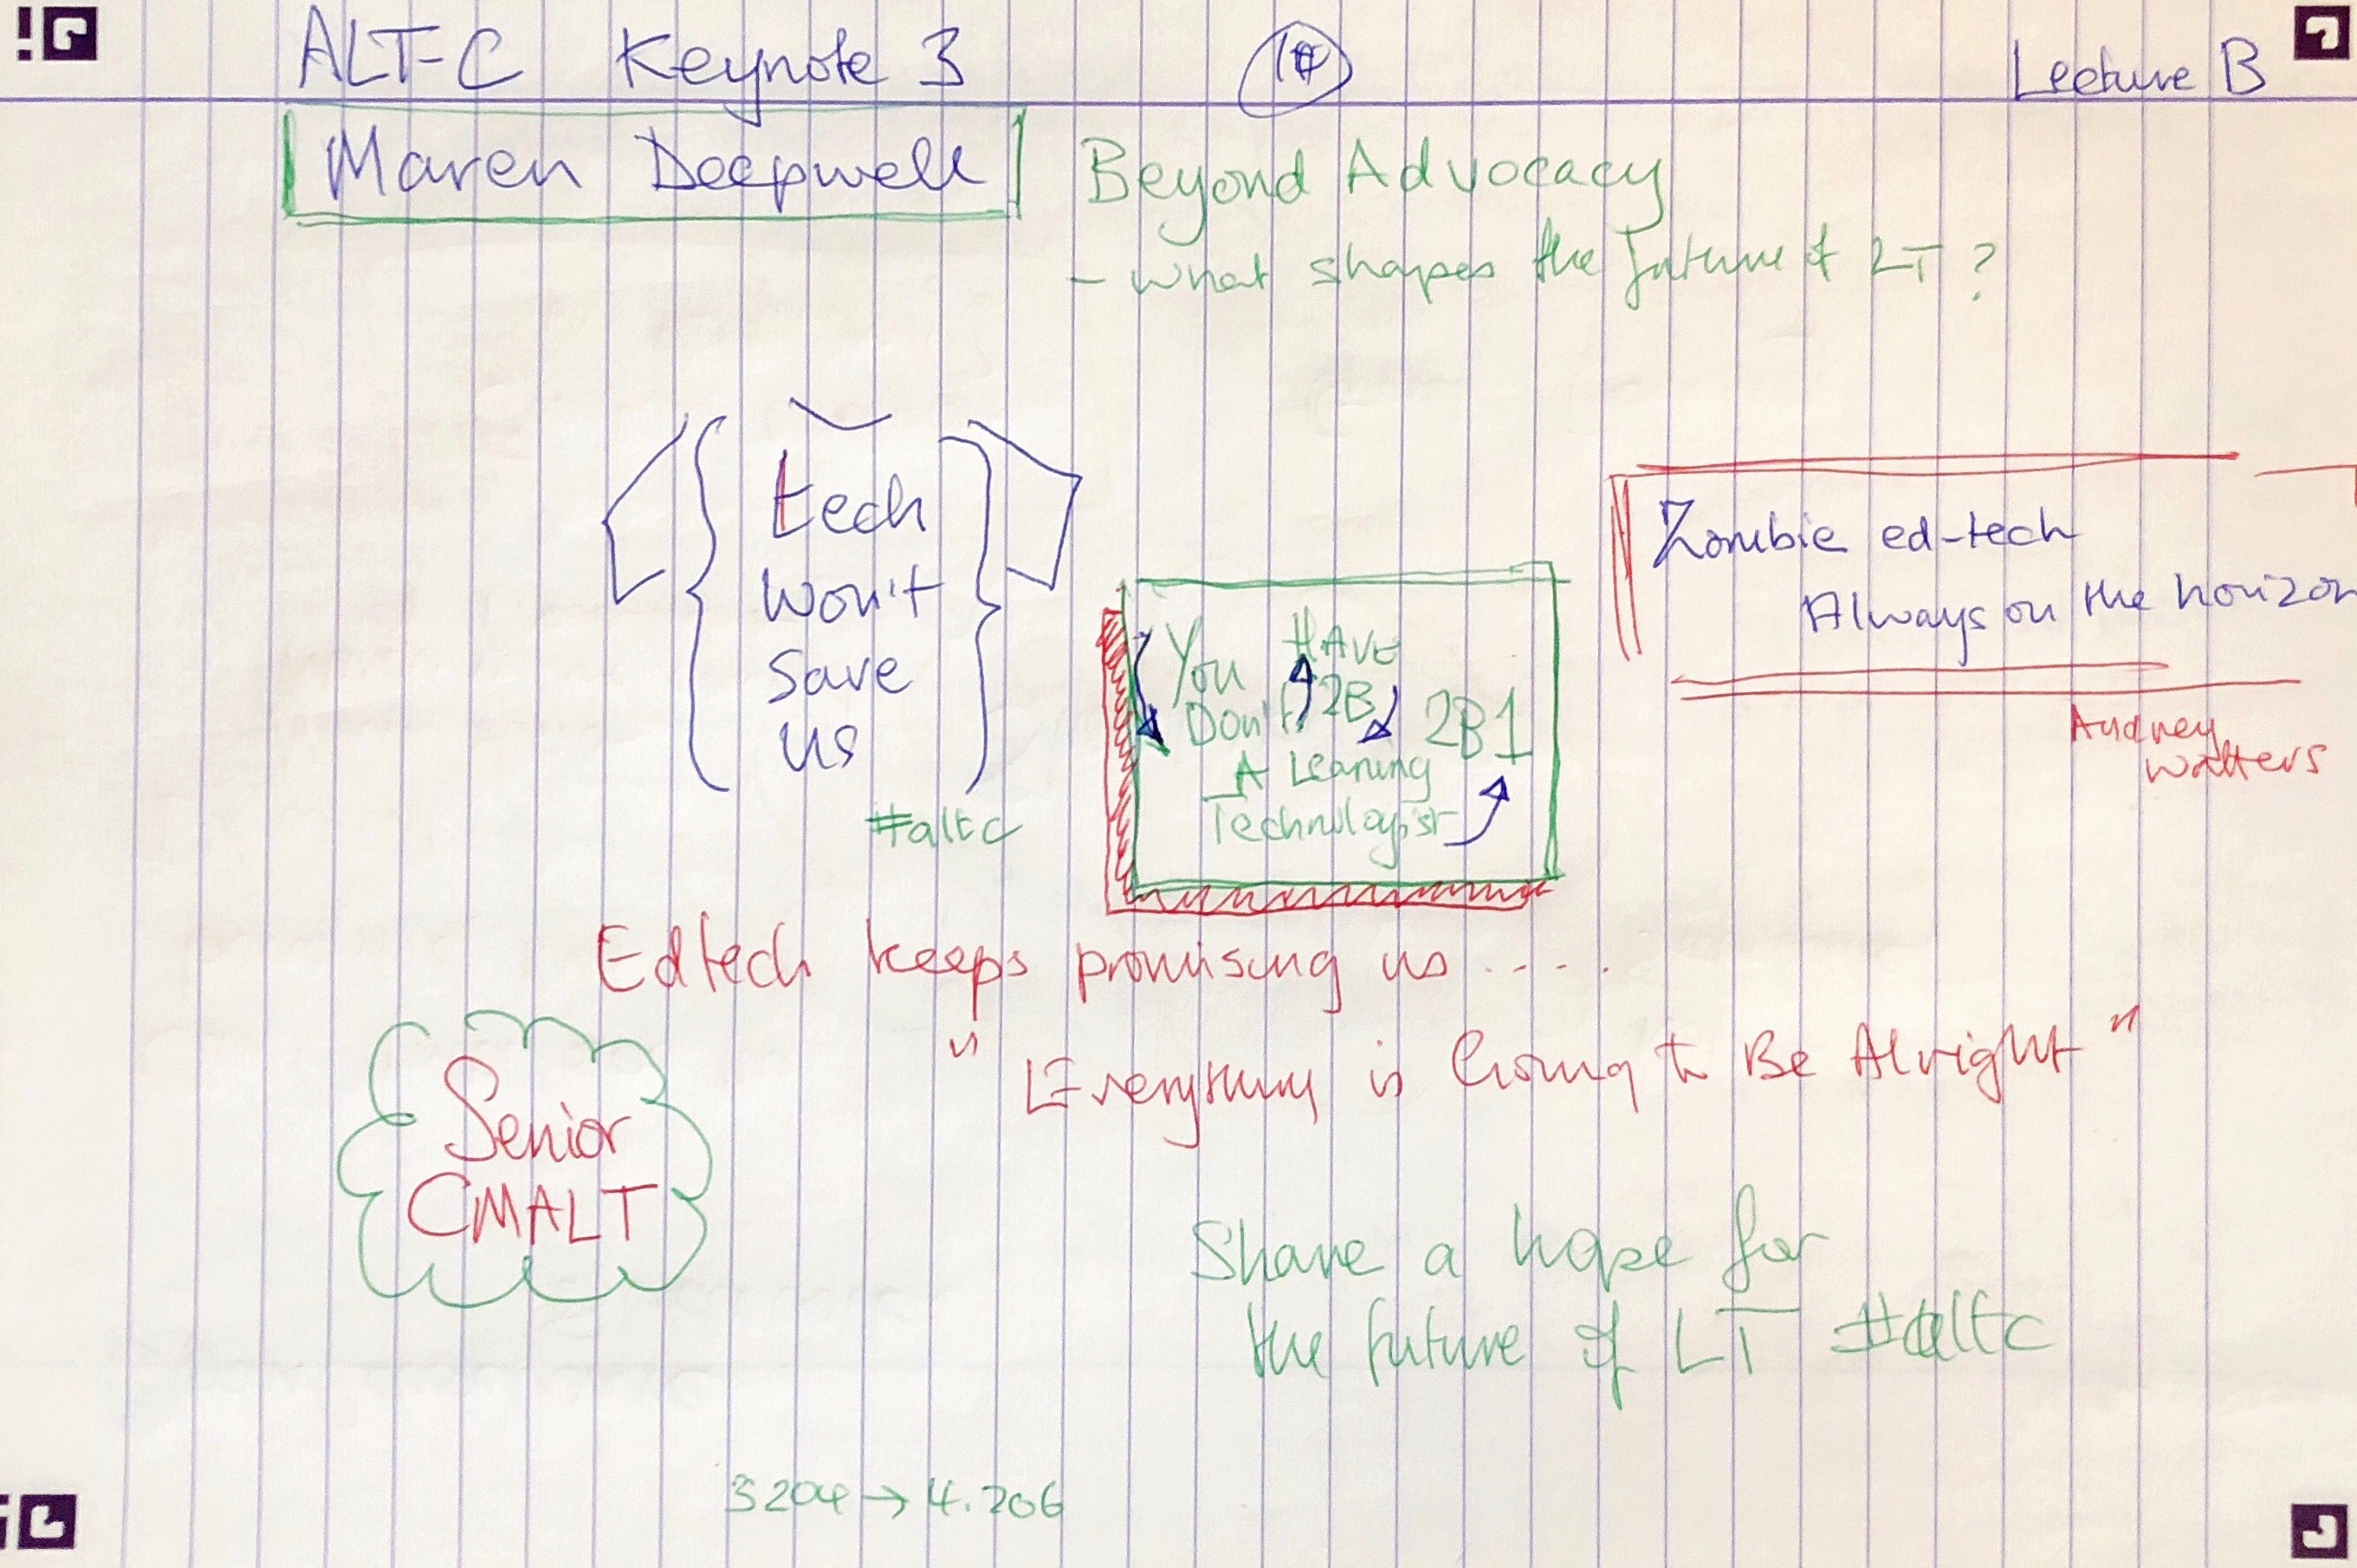 ALT-C Keynote 3
Lecture B
Maren Deepwell
Beyond Advocacy
- what shapes the future of LT?
tech
won't
save
us
#altc
You HAVE
Don't 2B 2B1
A Learning
Technologist
Zombie ed-tech
Always on the horizon
Audrey
Watters
Edtech keeps promising us ....
"Everything is Going to Be Alright"
Senior
CMALT
Share a hope for
the future of LT #altc
3204 → 4.206